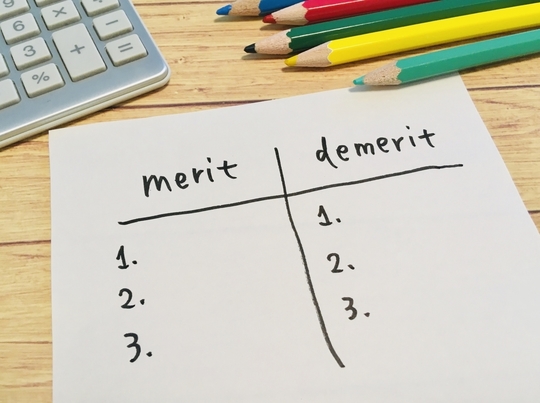 9 ×
6 -
3 + =
%
merit demerit
1. 1.
2. 2.
3. 3.